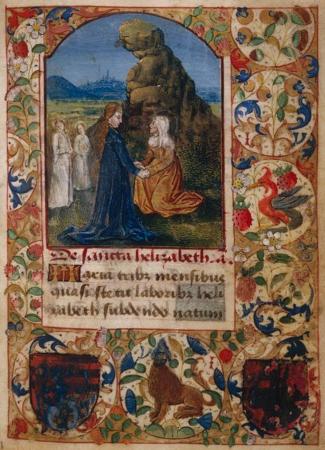 De sancta helizabeth. a.
Ageia tribz mensibus
quasi stetit laboribz heli
zabeth subdendo natum